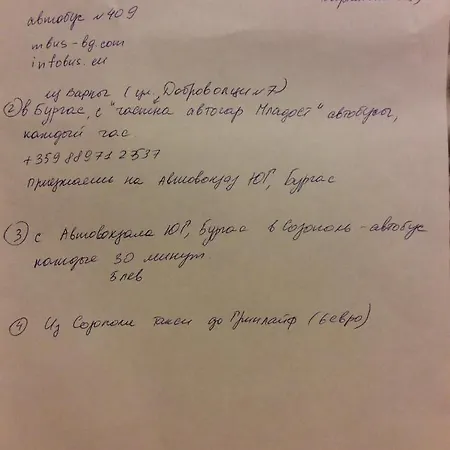 автобус №409
mbus-bg.com
infobus.eu
из Варны (ул. Доброволци №7)
② в Бургас, с "частна автогар Младост" автобусы,
каждый час.
+359 88971 2537
Приезжаешь на Автовокзал ЮГ, Бургас
③ с Автовокзала ЮГ, Бургас в Созополь - автобус
каждые 30 минут.
5 лев
④ Из Созополя такси до Гринлайф (6 евро)